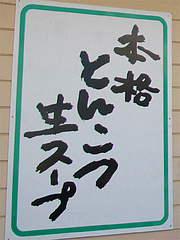 本格
とんこつ
生スープ